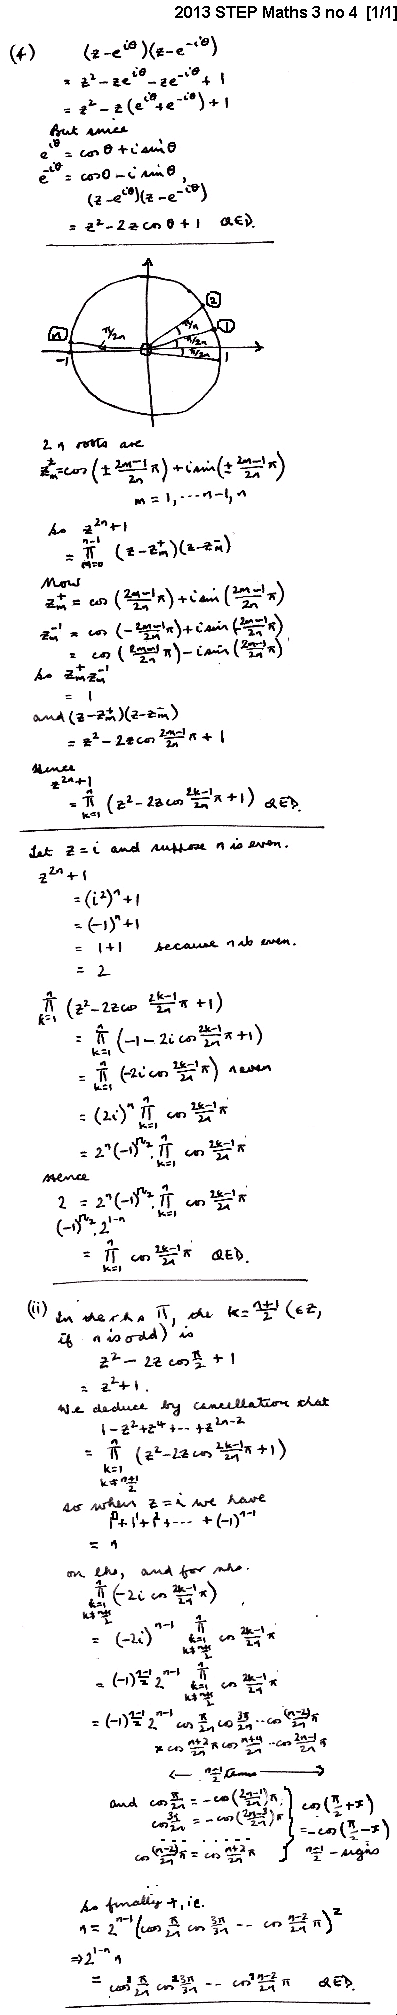 2013 STEP Maths 3 no 4 [1/1]
(4) (z-e^{iθ})(z-e^{-iθ})
= z² - ze^{iθ} - ze^{-iθ} + 1
= z² - z(e^{iθ}+e^{-iθ}) + 1
But since
e^{iθ} = cos θ + i sin θ
e^{-iθ} = cos θ - i sin θ,
(z-e^{iθ})(z-e^{-iθ})
= z² - 2z cos θ + 1 QED.
2
n π/2n π/n 1
π/2n
-1 π/2n 1
2n roots are
z_m^± = cos(± (2m-1)/2n π) + i sin(± (2m-1)/2n π)
m = 1, ... n-1, n
So z^{2n}+1
= ∏_{m=0}^{n-1} (z-z_m^+)(z-z_m^-)
Now
z_m^+ = cos((2m-1)/2n π) + i sin((2m-1)/2n π)
z_m^{-1} = cos(-(2m-1)/2n π) + i sin(-(2m-1)/2n π)
= cos((2m-1)/2n π) - i sin((2m-1)/2n π)
So z_m^+ z_m^{-1}
= 1
and (z-z_m^+)(z-z_m^-)
= z² - 2z cos (2m-1)/2n π + 1
Hence
z^{2n}+1
= ∏_{k=1}^{n} (z² - 2z cos (2k-1)/2n π + 1) QED.
Let z = i and suppose n is even.
z^{2n}+1
= (i²)^n + 1
= (-1)^n + 1
= 1+1 because n is even.
= 2
∏_{k=1}^{n} (z² - 2z cos (2k-1)/2n π + 1)
= ∏_{k=1}^{n} (-1 - 2i cos (2k-1)/2n π + 1)
= ∏_{k=1}^{n} (-2i cos (2k-1)/2n π) n even
= (2i)^n ∏_{k=1}^{n} cos (2k-1)/2n π
= 2^n (-1)^{n/2} . ∏_{k=1}^{n} cos (2k-1)/2n π
Hence
2 = 2^n (-1)^{n/2} . ∏_{k=1}^{n} cos (2k-1)/2n π
(-1)^{n/2} . 2^{1-n}
= ∏_{k=1}^{n} cos (2k-1)/2n π QED.
(ii) In the rhs ∏, the k = (n+1)/2 (∈ Z,
if n is odd) is
z² - 2z cos π/2 + 1
= z² + 1.
We deduce by cancellation that
1 - z² + z⁴ + ... + z^{2n-2}
= ∏_{k=1, k≠(n+1)/2}^{n} (z² - 2z cos (2k-1)/2n π + 1)
so when z = i we have
1⁰ + 1¹ + 1² + ... + (-1)^{n-1}
= n
on lhs, and for rhs.
∏_{k=1, k≠(n+1)/2}^{n} (-2i cos (2k-1)/2n π)
= (-2i)^{n-1} ∏_{k=1, k≠(n+1)/2}^{n} cos (2k-1)/2n π
= (-1)^{(n-1)/2} 2^{n-1} ∏_{k=1, k≠(n+1)/2}^{n} cos (2k-1)/2n π
= (-1)^{(n-1)/2} 2^{n-1} cos π/2n cos 3π/2n ... cos (n-2)/2n π
× cos (n+2)/2n π cos (n+4)/2n ... cos (2n-1)/2n π
← (n-1)/2 terms →
and cos π/2n = -cos((2n-1)/2n)π } cos(π/2 + x)
cos 3π/2n = -cos((2n-3)/2n)π = -cos(π/2 - x)
cos (n-2)/2n π = cos (n+2)/2n π (n-1)/2 - signs
So finally +, i.e.
n = 2^{n-1} (cos π/2n cos 3π/2n ... cos (n-2)/2n π)²
⇒ 2^{1-n} n
= cos² π/2n cos² 3π/2n ... cos² (n-2)/2n π QED.